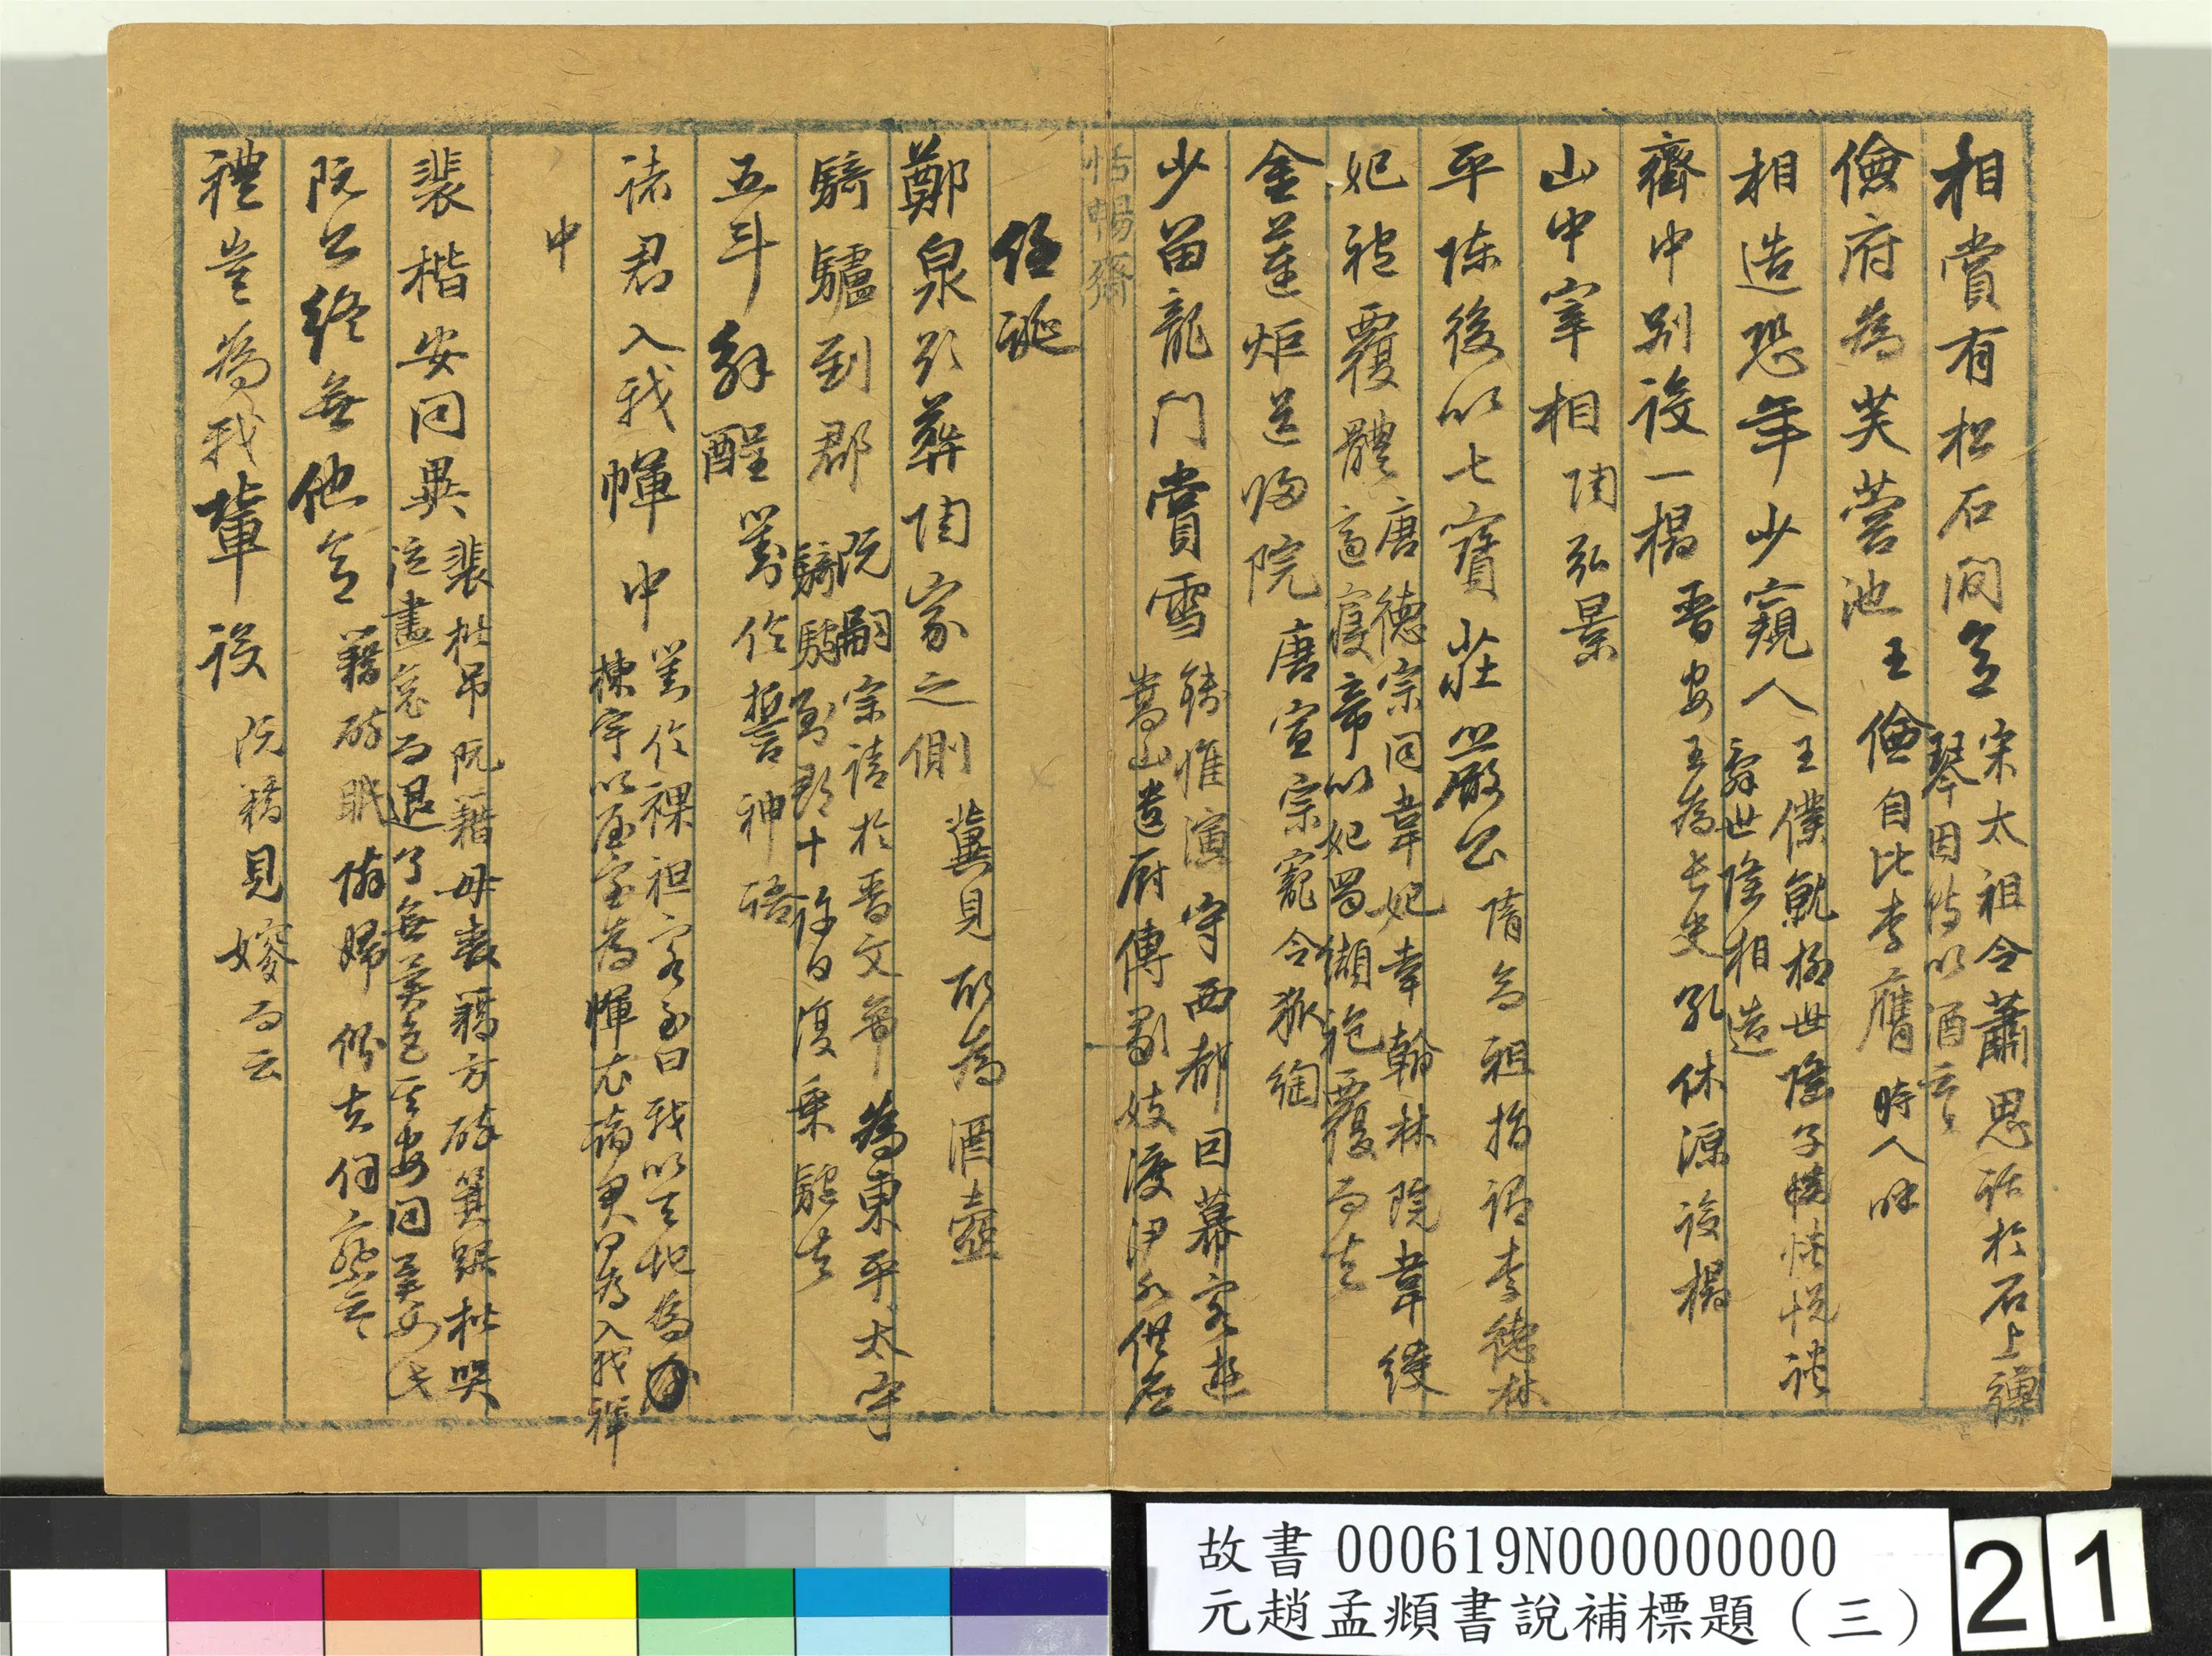 相賞有松石間意 宋太祖令蕭思話於石上彈
琴因賜以酒云
儉府為芙蓉池 王儉自比李膺時人呼
相造恐年少窺人 王僕就柳世隆子惔怳悅禮
辭世隆相造
齋中別設一榻 晉安王為長史孔休源設榻
山中宰相 陶弘景
平陳後以七寶莊嚴公 隋高祖指謂李德林
妃袍覆體 唐德宗同韋妃幸翰林院韋綬
適寢帝以妃蜀纈袍覆而去
金蓮炬送歸院 唐宣宗寵令狐綯
少留龍門賞雪 錢惟演守西都因幕客遊
嵩山遣廚傳歌妓渡伊水供應
恬暢齋
任誕
鄭泉欲葬陶家之側 冀見取為酒壺
騎驢到郡 阮嗣宗請於晉文帝為東平太守
騎驢到郡十許日復乘驢去
五斗解酲 劉伶誓神語
諸君入我㡓中 劉伶裸袒客至曰我以天地為
棟宇以屋室為㡓衣諸君何為入我㡓
中
裴楷安同異 裴楷弔阮籍母喪籍方醉箕踞楷哭
泣盡哀而退了無異色其安同異如此
阮公終無他意 籍醉眠鄰婦側去伺察云
禮豈為我輩設 阮籍見嫂而云
故書 000619N000000000
元趙孟頫書說補標題（三）
21